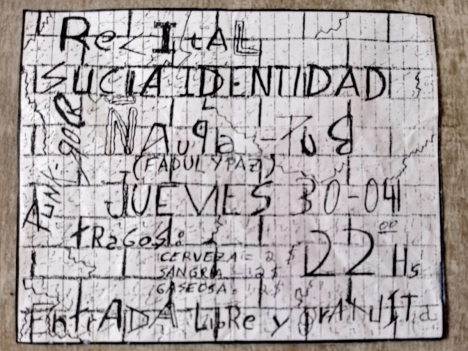 ReZItAL
SUCIA IDENTIDAD
PUNK
NAUPA - PUB
(FADUL Y PAZ)
JUEVES 30-04
tRAGOS:
22 00 Hs
CERVEZA = 2 $
SANGRIA = 2 $
GASEOSA = 2 $
EntrADA LibRe y grAtUITa